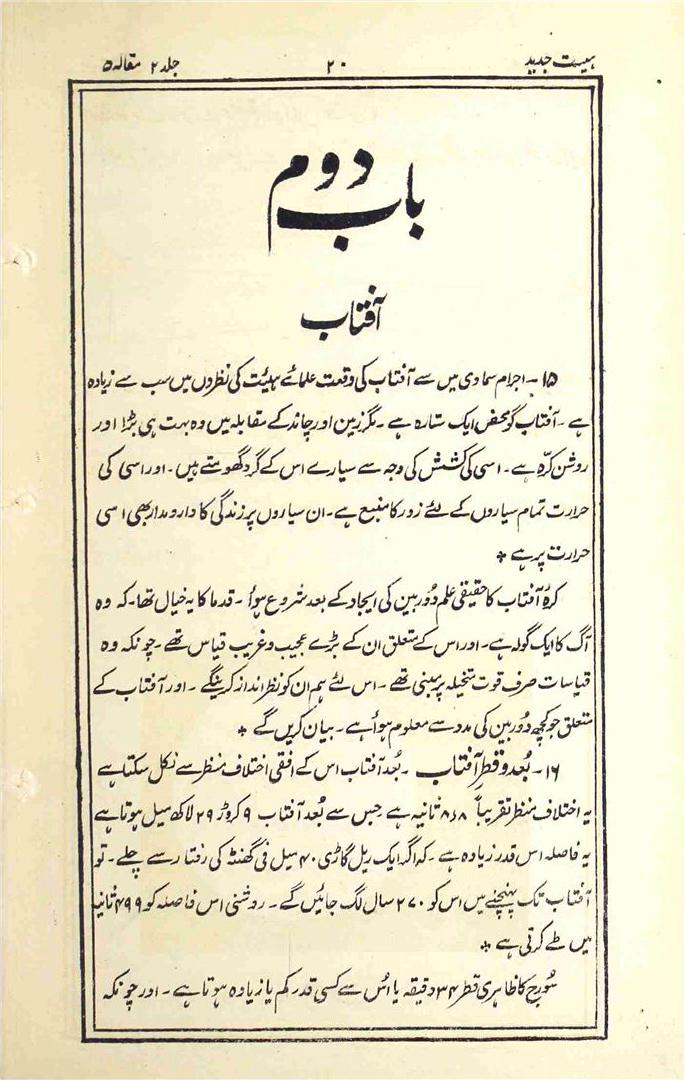 ہیئت جدید ۲۰ جلد ۲ مقالہ ۵
باب دوم
آفتاب
۱۵۔ اجرام سماوی میں سے آفتاب کی وقعت علمائے ہیئت کی نظروں میں سب سے زیادہ
ہے۔ آفتاب گو محض ایک ستارہ ہے۔ مگر زمین اور چاند کے مقابلہ میں وہ بہت ہی بڑا اور
روشن کرّہ ہے۔ اسی کی کشش کی وجہ سے سیارے اس کے گرد گھومتے ہیں۔ اور اسی کی
حرارت تمام سیاروں کے لئے زور کا منبع ہے۔ ان سیاروں پر زندگی کا دارومدار بھی اسی
حرارت پر ہے *
کرۂ آفتاب کا حقیقی علم دُوربین کی ایجاد کے بعد شروع ہوأ۔ قدما کا یہ خیال تھا۔ کہ وہ
آگ کا ایک گولہ ہے۔ اور اس کے متعلق ان کے بڑے عجیب و غریب قیاس تھے۔ چونکہ وہ
قیاسات صرف قوت متخیلہ پر مبنی تھے۔ اس لئے ہم ان کو نظر انداز کرینگے۔ اور آفتاب کے
متعلق جو کچھ دُوربین کی مدد سے معلوم ہوأ ہے۔ بیان کریں گے *
۱۶۔ بُعد و قطرِ آفتاب۔ بُعد آفتاب اس کے افقی اختلاف منظر سے نکل سکتا ہے
یہ اختلاف منظر تقریباً ۸ء۸ ثانیہ ہے جس سے بُعد آفتاب ۹ کروڑ ۲۹ لاکھ میل ہوتا ہے
یہ فاصلہ اس قدر زیادہ ہے۔ کہ اگر ایک ریل گاڑی ۴۰ میل فی گھنٹہ کی رفتار سے چلے۔ تو
آفتاب تک پہنچنے میں اس کو ۲۷۰ سال لگ جائیں گے۔ روشنی اس فاصلہ کو ۴۹۹ ثانیہ
میں طے کرتی ہے *
سُورج کا ظاہری قطر ۳۴ دقیقہ یا اُس سے کسی قدر کم یا زیادہ ہوتا ہے۔ اور چونکہ